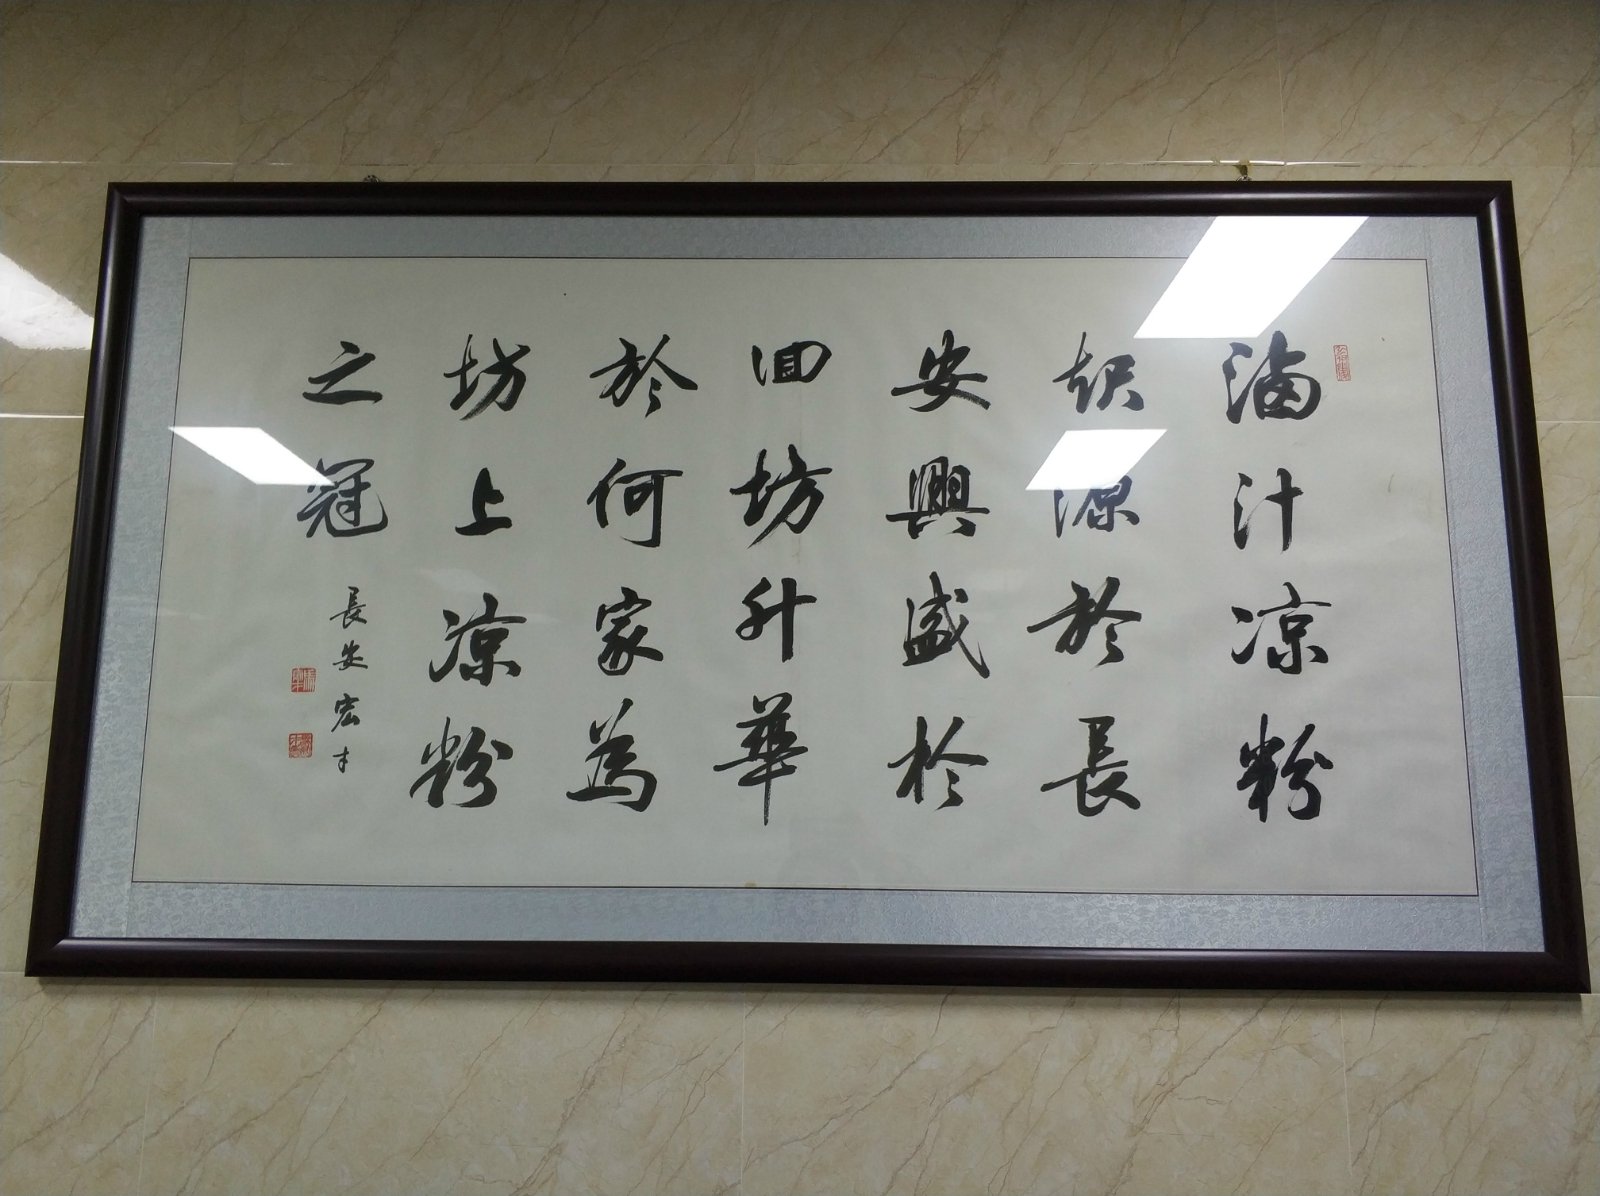 滷汁凉粉
起源於長
安興盛於
回坊升華
於何家為
坊上凉粉
之冠
長安宏才